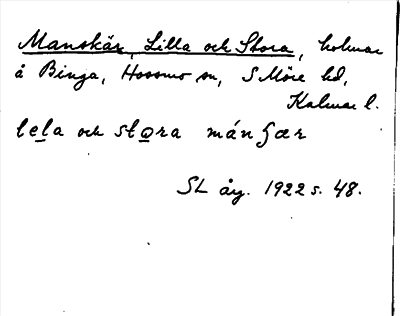 Manskär, Lilla och Stora, holmar
å Binga, Hossmo sn, S Möre hd,
Kalmar l.
lela och stora mánʃær
SL åg. 1922 s. 48.